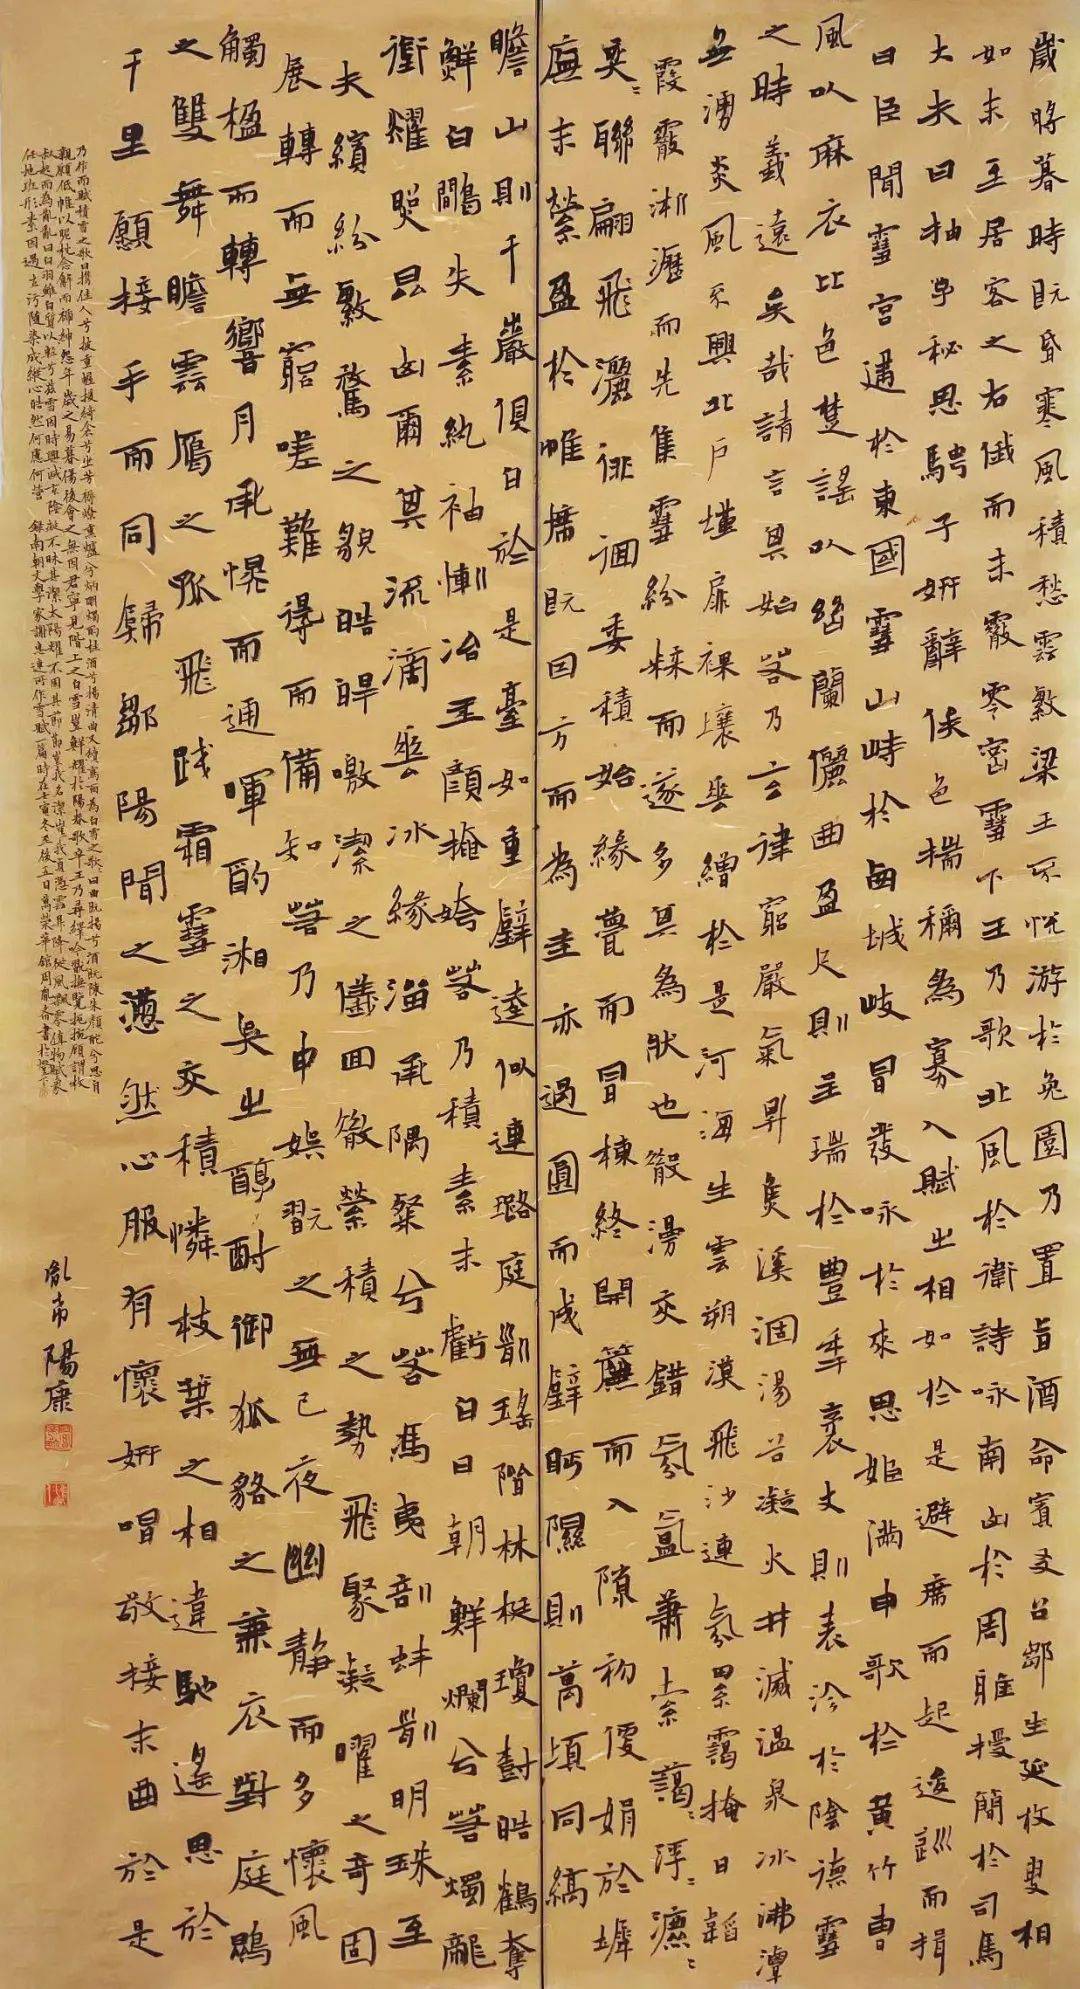 歲將暮時既昏寒風積愁雲繁梁王不悅游於兔園乃置旨酒命賓友召鄒生延枚叟相
如末至居客之右俄而未霰零密雪下王乃歌北風於衛詩咏南山於周雅授簡於司馬
大夫曰抽子秘思騁子妍辭侔色揣稱為寡人賦之相如於是避席而起逡巡而揖
曰臣聞雪宮建於東國雪山峙於西域岐昌發咏於來思姬滿申歌於黃竹曹
風以麻衣比色楚謠以幽蘭儷曲盈尺則呈瑞於豐年袤丈則表沴於陰德雪
之時義遠矣哉請言其始若乃玄律窮嚴氣昇焦溪涸湯谷凝火井滅溫泉冰沸潭
無湧炎風不興北戶墐扉裸壤垂繒於是河海生雲朔漠飛沙連氛累靄掩日韜
霞霰淅瀝而先集雪紛糅而遂多其為狀也散漫交錯氛氳蕭索藹〻浮〻瀌〻
奕〻聯翩飛灑徘徊委積始緣甍而冒棟終開簾而入隙初便娟於墀
廡末縈盈於帷席既因方而為圭亦遇圓而成璧眄隰則萬頃同縞
瞻山則千巖俱白於是臺如重璧逵似連璐庭列瑤階林挺瓊樹皓鶴奪
鮮白鷴失素紈袖慚冶玉顏掩姱若乃積素未虧白日朝鮮爛兮若燭龍
銜耀照昆山爾其流滴垂冰緣溜承隅粲兮若馮夷剖蚌列明珠至
夫繽紛繁騖之貌皓皔曒潔之儀回散縈積之勢飛聚凝曜之奇固
展轉而無窮嗟難得而備知若乃申娛翫之無已夜幽靜而多懷風
觸楹而轉響月承幌而通暉酌湘吳之醇酎御狐貉之兼衣對庭鵾
之雙舞瞻雲雁之孤飛踐霜雪之交積憐枝葉之相違馳遙思於
千里願接手而同歸鄒陽聞之懣然心服有懷妍唱敬接末曲於是
乃作而賦積雪之歌曰攜佳人兮披重幄援綺衾兮坐芳縟燎熏爐兮炳明燭酌桂酒兮揚清曲又續寫而為白雪之歌曰曲既揚兮酒既陳朱顏酡兮思自
親願低帷以昵枕念解而褫紳怨年歲之易暮傷後會之無因君寧見階上之白雪豈鮮耀於陽春歌卒王乃尋繹吟翫撫覽扼腕顧謂枚
叔起而為亂亂曰白羽雖白質以輕兮茲雪因時興滅玄陰凝不昧其潔太陽耀不固其節節豈我名潔豈我貞憑雲昇降從風飄零值物賦象
任地班形素因遇立污隨染成縱心皓然何慮何營 錄南朝文學家謝惠連所作雪賦一篇時在壬寅冬至後五日萬榮華館周胤帝書於燈下
胤帝陽康